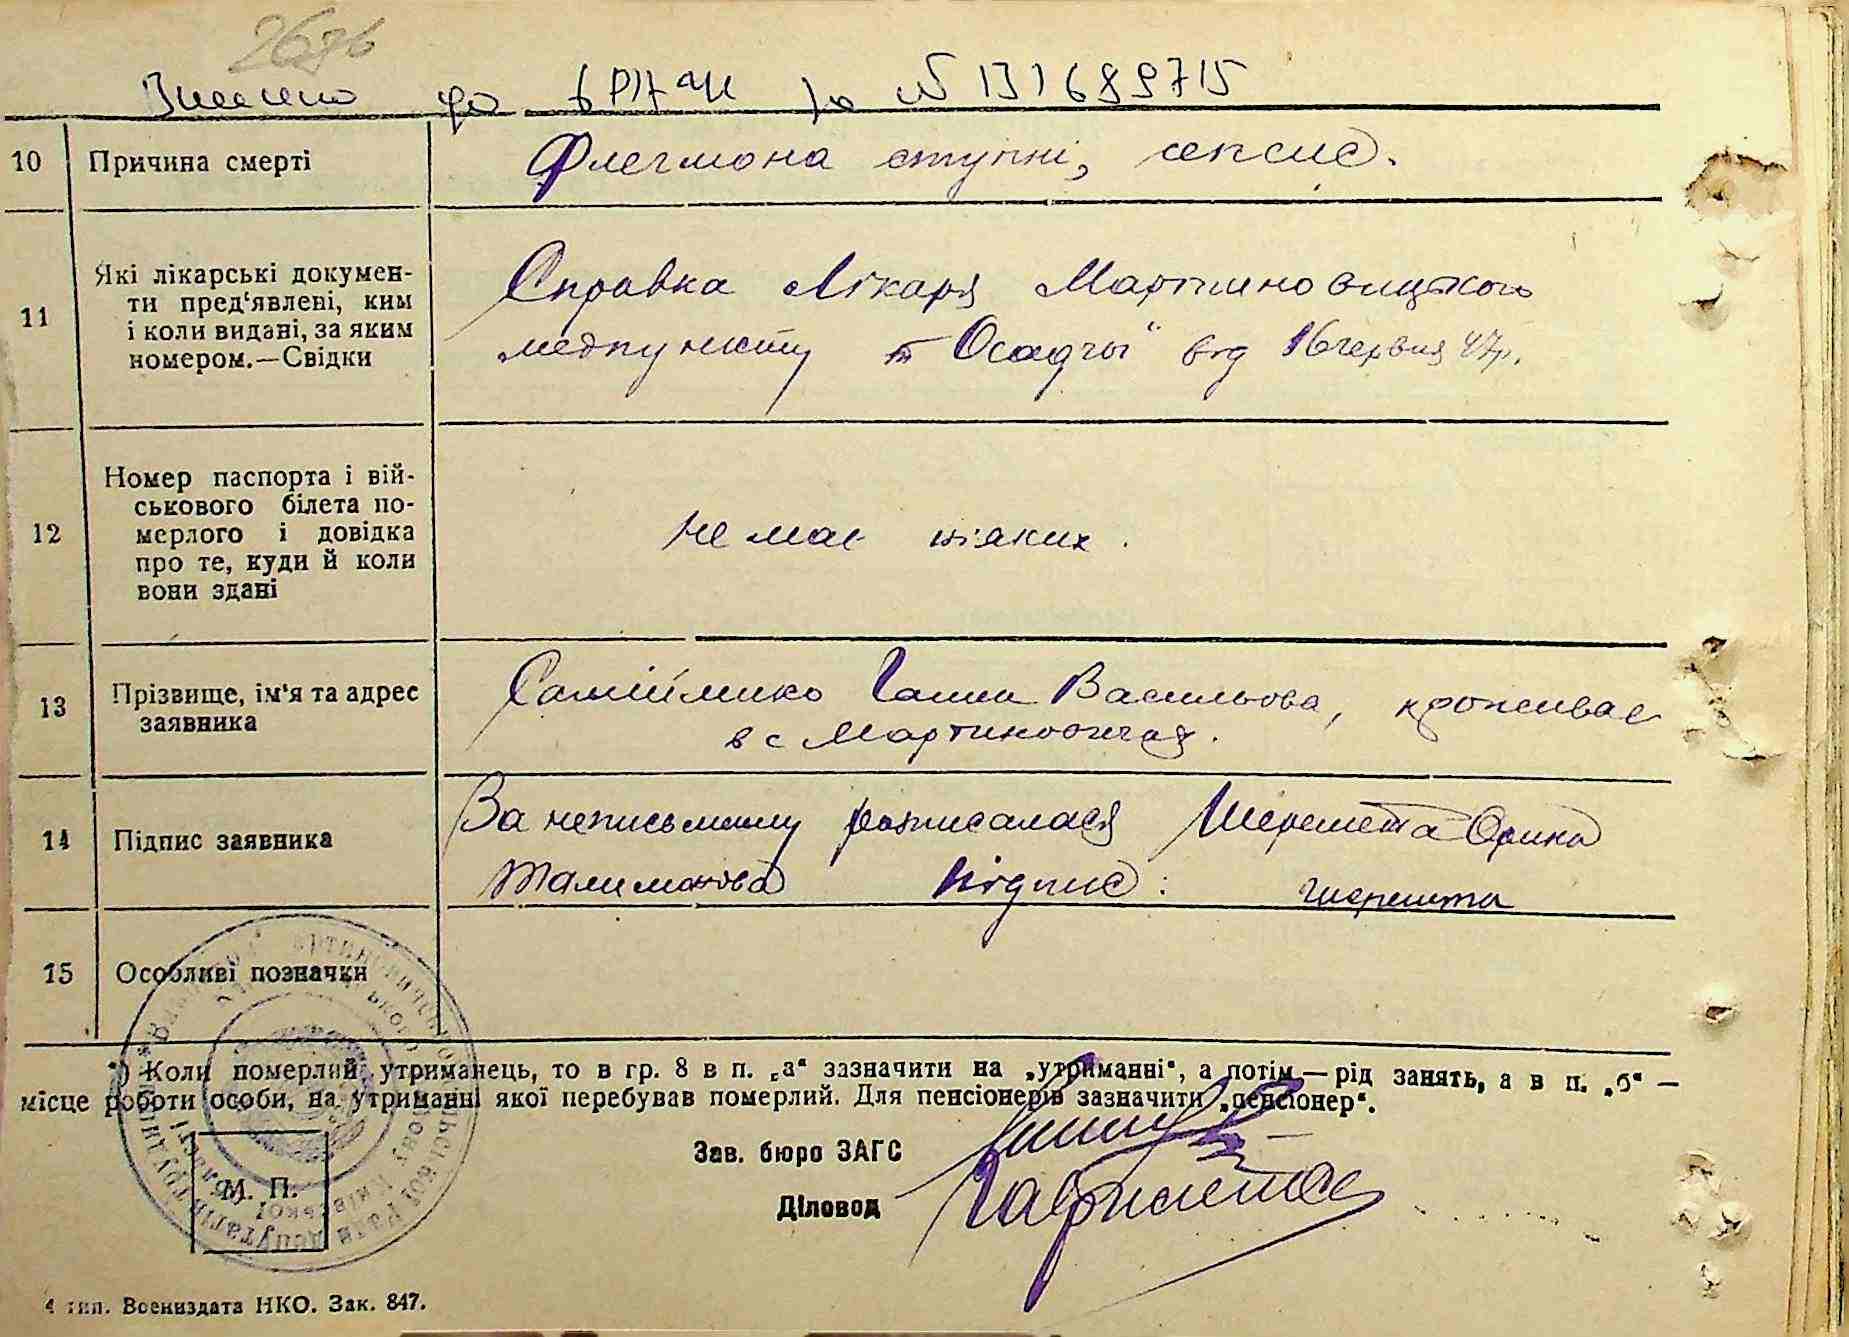 267б
Внесено до ДРАЦС за № 131689715
10 Причина смерті Флегмона ступні, сепсис.
11 Які лікарські докумен-
ти пред'явлені, ким
і коли видані, за яким
номером.—Свідки
Справка Лікаря Мартиновицького
медпункту т Осадчы від 16 червня 47р.
12 Номер паспорта і вій-
ськового білета по-
мерлого і довідка
про те, куди й коли
вони здані
не має ніяких.
13 Прізвище, ім'я та адрес
заявника
Ганна Васильовна, проживає
в с Мартиновичах.
14 Підпис заявника
За неписьмену розписалася Шеремета Орина
Підпис: шеремета
15 Особливі позначки
*) Коли померлий утриманець, то в гр. 8 в п. „а“ зазначити на „утриманні“, а потім — рід занять, а в п. „б“ —
місце роботи особи, на утриманні якої перебував померлий. Для пенсіонерів зазначити „пенсіонер“.
Зав. бюро ЗАГС
Діловод
М. П.
4 тип. Воениздата НКО. Зак. 847.